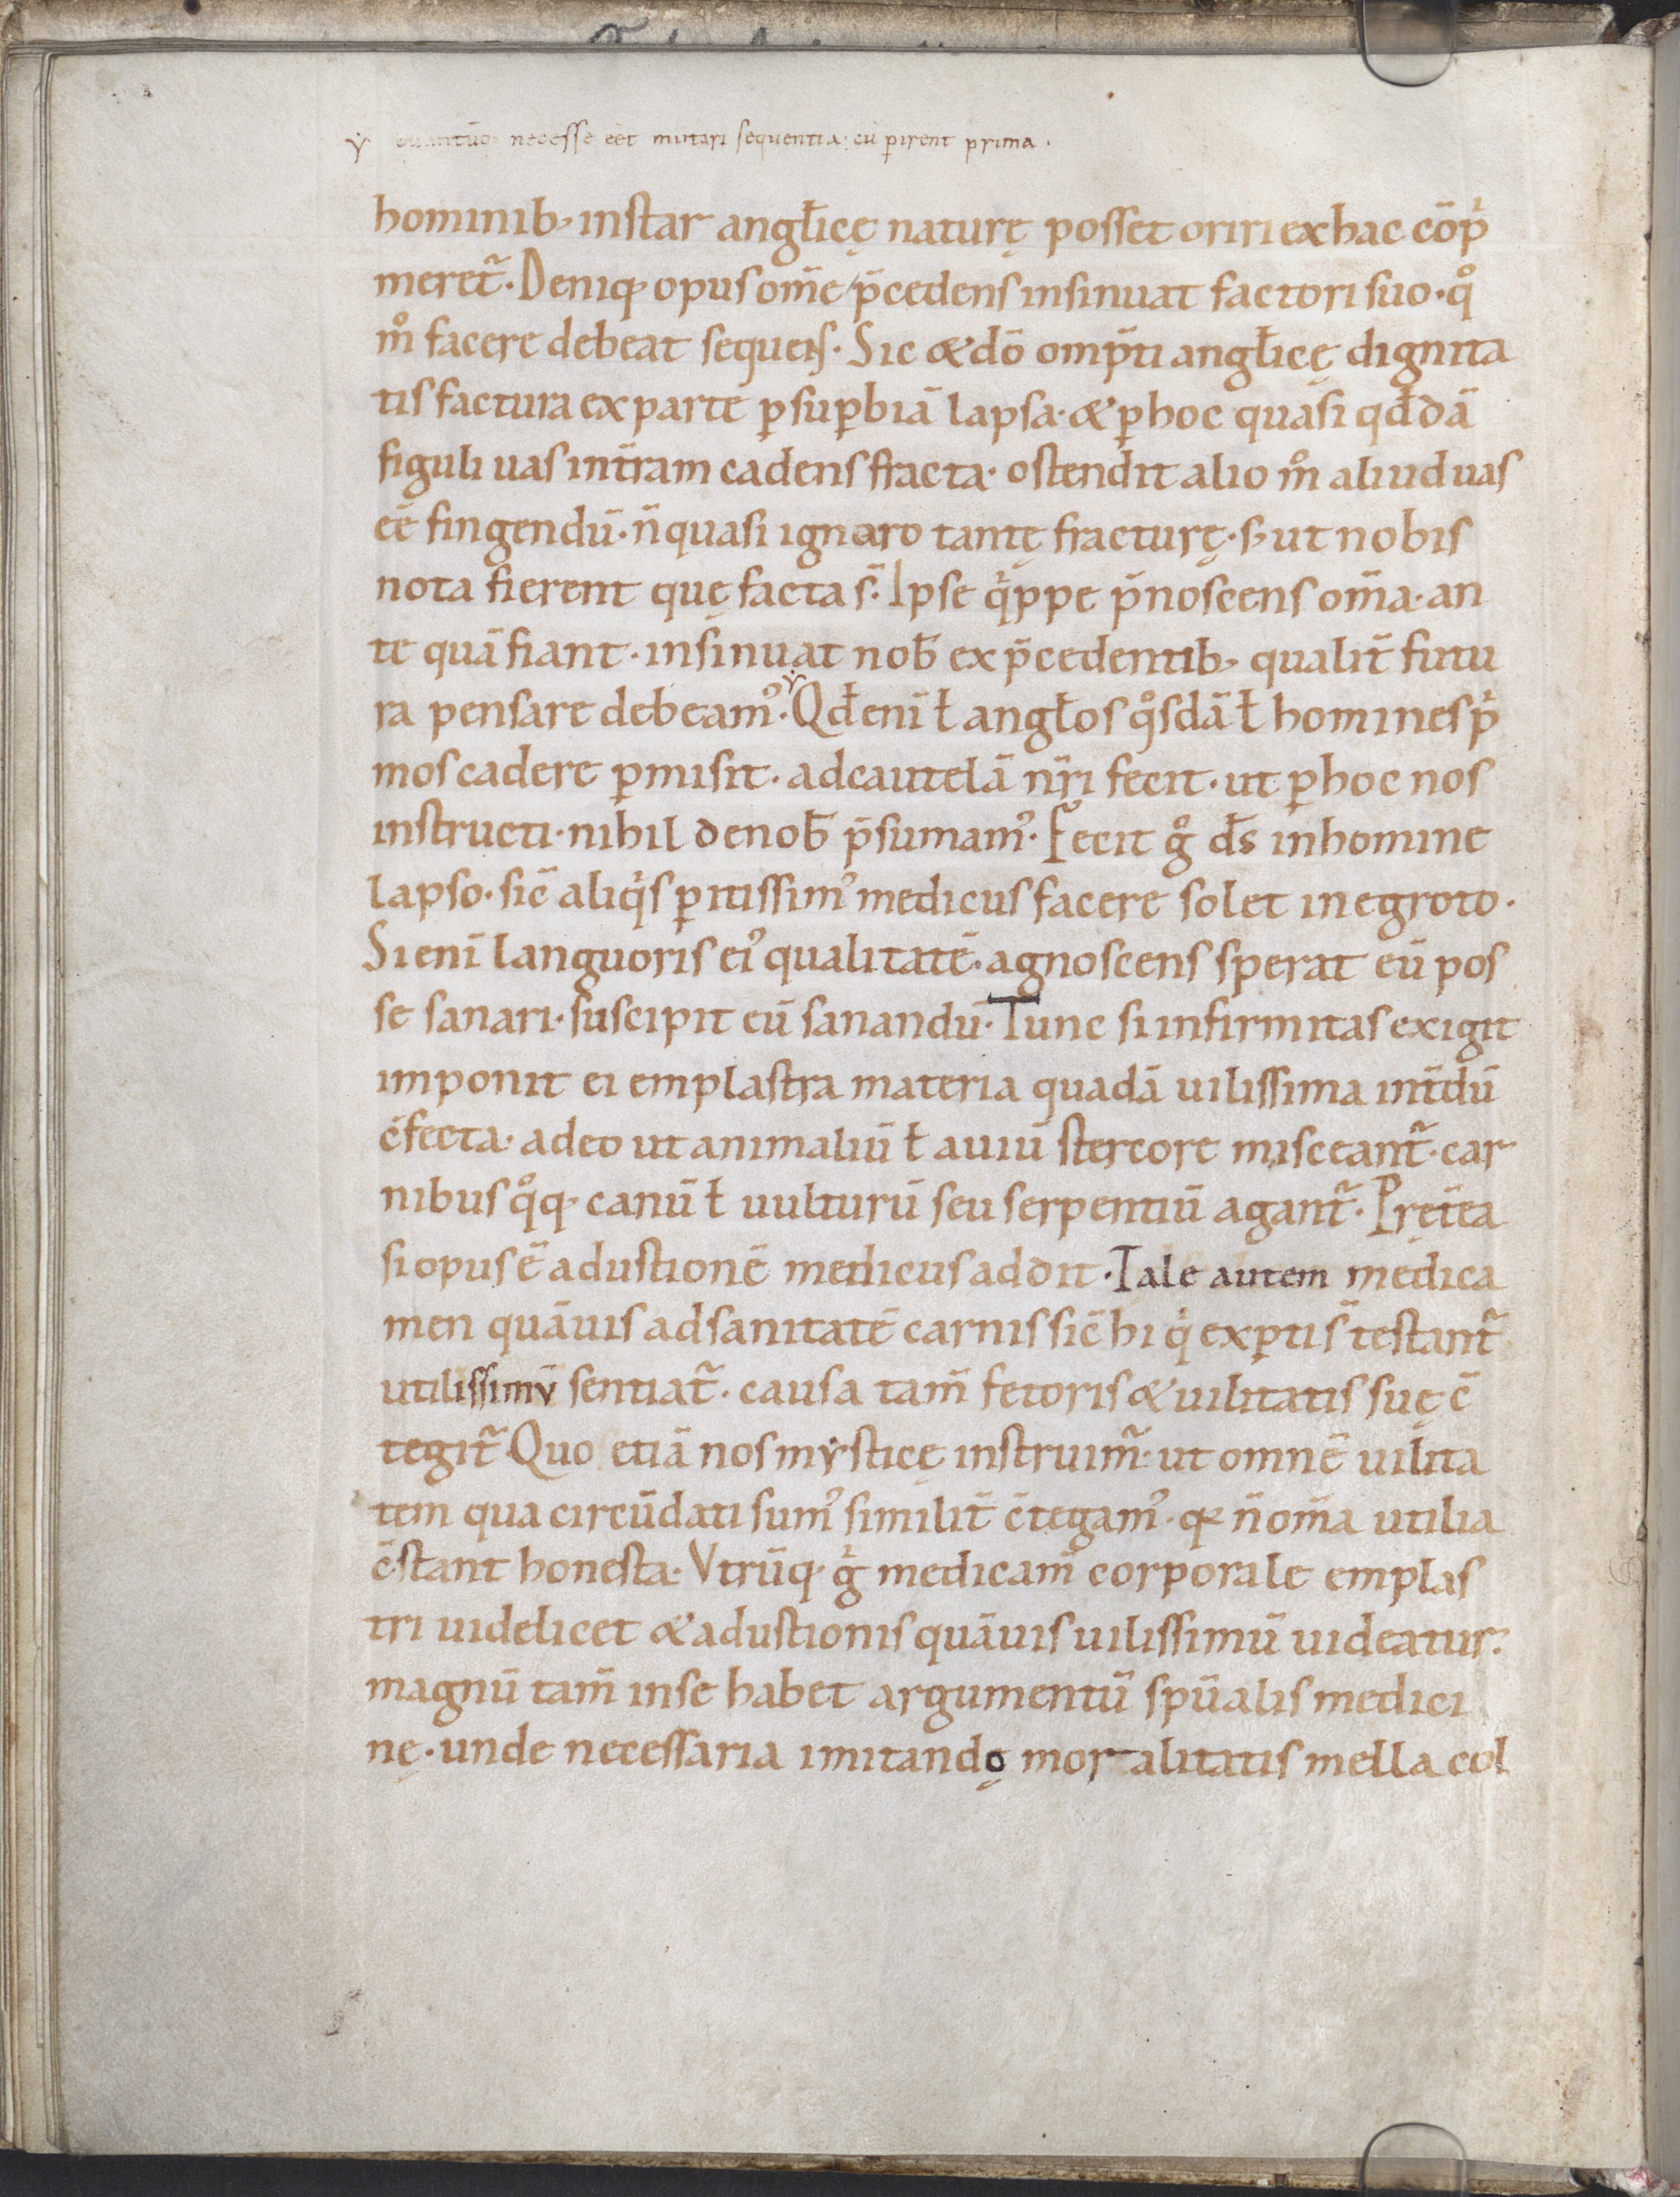 necesse eēt mutari sequentia · cū ꝑirent prima ·
hominib; instar angl̄icę naturę posset oriri ex hac cōp͛
meret̄ · Deniq; opus om̄e p̄cedens insinuat factori suo · qͦ
mͦ facere debeat sequens · Sic & dō omp̄ti angl̄icę dignita
tis factura ex parte ꝑ suꝑbiā lapsa · & ꝑ hoc quasi qđdā
figuli uas in t̄ram cadens fracta · ostendit alio mͦ aliud uas
eē fingendū · n̄ quasi ignaro tantę fracturę · s; ut nobis
nota fierent quę facta s̄ · Ipse q͛ppe p̄noscens om̄a · an
te quā fiant · insinuat nob̄ ex p̄cedentib; qualit̄ futu
ra pensare debeamꝰ · Qđ enī ł angl̄os qͦsdā ł homines p͛
mos cadere ꝑmisit · ad cautelā nr̄i fecit · ut ꝑ hoc nos
instructi · nihil de nob̄ p̄sumamꝰ · Fecit gͦ d̄s in homine
lapso · sic̄ aliq͛s ꝑitissimꝰ medicus facere solet in egroto ·
Si enī languoris eiꝰ qualitatē · agnoscens sperat eū pos
se sanari · suscipit eū sanandū · Tunc si infirmitas exigit
imponit ei emplastra materia quadā uilissima int̄dū
c̄fecta · adeo ut animaliū ł auiū stercore misceant̄ · car
nibus qͦq; canū ł uulturū seu serpentiū agant̄ · Pręt̄ea
si opus ē adustionē medicus addit · Tale autem medica
men quāuis ad sanitatē carnis sic̄ hi q͛ exꝑti s̄ testant̄
utilissimv̄ sentiat̄ · causa tam̄ fetoris & uilitatis suę c̄
tegit̄ Quo etiā nos mysticę instruim̄ · ut omnē uilita
tem qua circūdati sumꝰ similit̄ c̄tegamꝰ · q; n̄ om̄a utilia
c̄stant honesta · Vtrūq; g͛ medicam̄ corporale emplas
tri uidelicet & adustionis quāuis uilissimū uideatur ·
magnū tam̄ in se habet argumentū sp̄ualis medici
nę · unde necessaria imitandǫ mortalitatis mella col